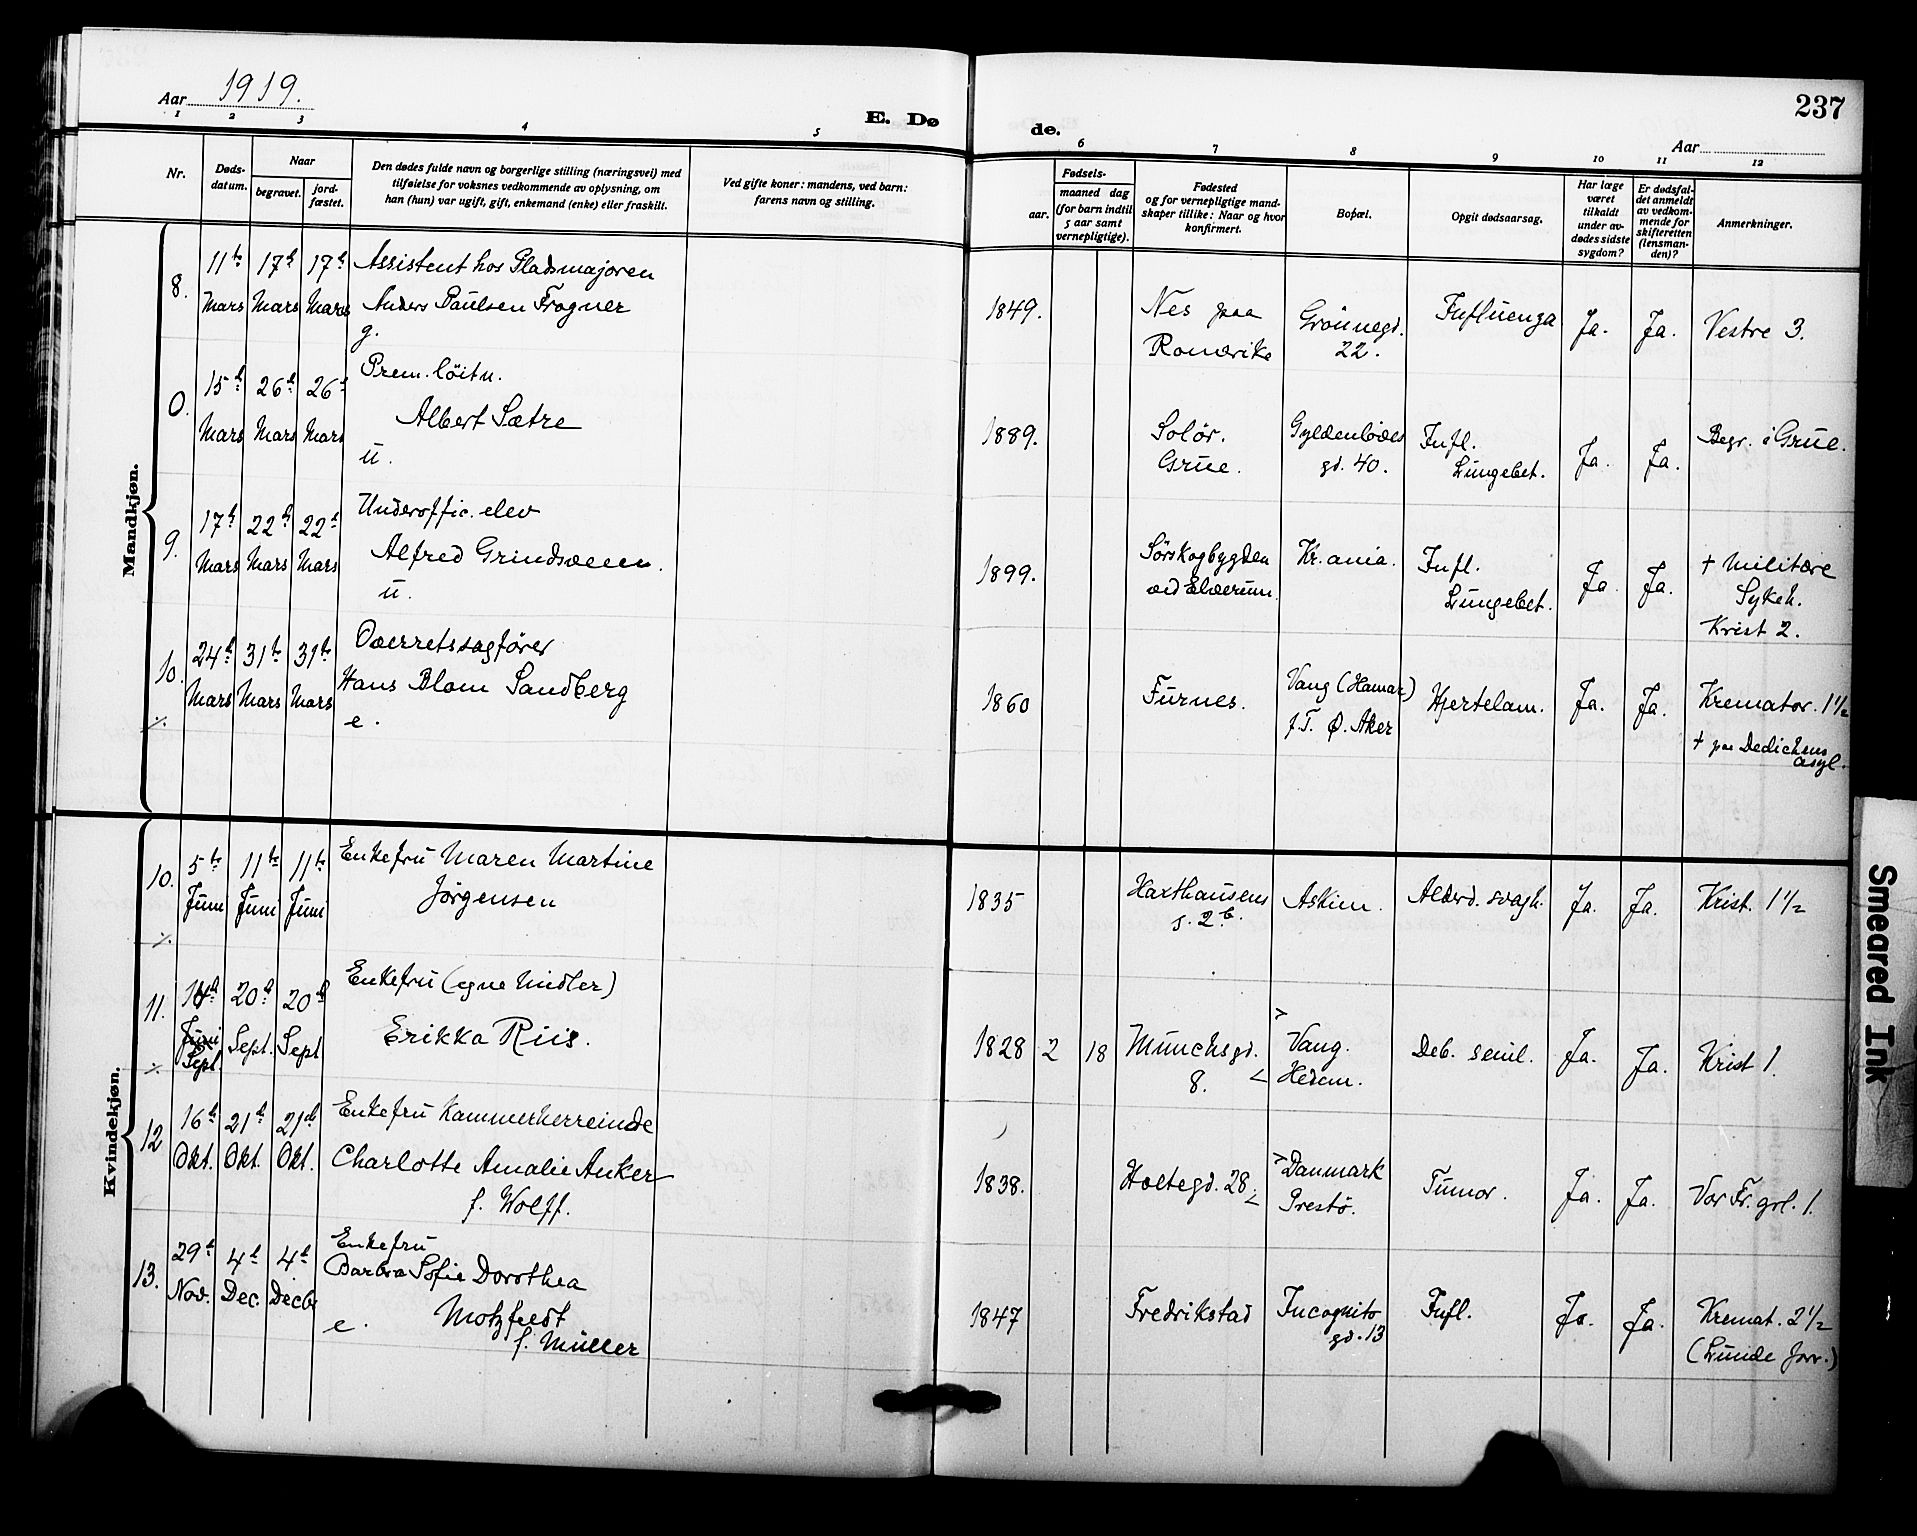 Aar 1919.
E. Døde.
237
Aar
1 2 3 4 5 6 7 8 9 10 11 12
Nr.
Døds-datum.
Naar
begravet.
jord-fæstet.
Den dødes fulde navn og borgerlige stilling (næringsvei) med
tilføielse for voksnes vedkommende av oplysning, om
han (hun) var ugift, gift, enkemand (enke) eller fraskilt.
Ved gifte koner: mandens, ved barn:
farens navn og stilling.
Fødsels-
aar.
maaned dag
(for barn indtil
5 aar samt
vernepligtige).
Fødested
og for vernepligtige mand-
skaper tillike: Naar og hvor
konfirmert.
Bopæl.
Opgit dødsaarsag.
Har læge
været
tilkaldt
under av-
dødes sidste
sygdom?
Er dødsfal-
det anmeldt
av vedkom-
mende for
skifteretten
(lensman-
den)?
Anmerkninger.
Mandkjøn.
8. 11te Mars 17de Mars 17de Mars
Assistent hos Pladsmajoren
Anders Paulsen Frogner
g.
1849. Nes paa Romerike Grönnegd. 22. Influenza Ja. Ja. Vestre 3.
0. 15de Mars 26de Mars 26de Mars
Prem. löitn.
Albert Sætre
u.
1889. Solör. Grue. Gyldenlöves gd. 40. Infl. Lungebet. Ja. Ja. Begr. i Grue.
9. 17de Mars 22de Mars 22de Mars
Underoffic. elev
Alfred Grindsveen.
u.
1899. Sörskogbygden ved Elverum. Kr.ania. Infl. Lungebet. Ja. Ja. + Militære Sykeh. Krist 2.
10. 24de Mars 31te Mars 31te Mars
Overretssagfører
Hans Blom Sandberg
e.
1860 Furnes. Vang (Hamar) f.T. Ø. Aker Hjertelam. Ja. Ja. Kremator. 1½
+ paa Dedichens asyl.
Kvindekjøn.
10. 5te Juni 11te Juni 11te Juni
Enkefru Maren Martine
Jörgensen
1835 Haxthausens g. 2b. Askim. Alderd. svagh. Ja. Ja. Krist. 1½
11. 14de Juni Sept. 20de Sept. 20de Sept
Enkefru (egne Midler)
Erikka Riis.
1828 2 18 Munchsgd. 8. Vang. Hedem. Deb. senil. Ja. Ja. Krist 1.
12 16de Okt. 21de Okt. 21de Okt.
Enkefru Kammerherreinde
Charlotte Amalie Anker
f. Wolff.
1838. Holtegd. 28. Danmark Prestö. Tumor. Ja. Ja. Vor Fr. grl. 1.
13. 29de Nov. 4de Dec. 4de Decbr
Enkefru
Barbra Sofie Dorothea
e. Motzfeldt
f. Müller
1847 Fredrikstad Incognito gd. 13 Infl. Ja. Ja. Kremat. 2½
(Lunde forr.)
Smeared Ink